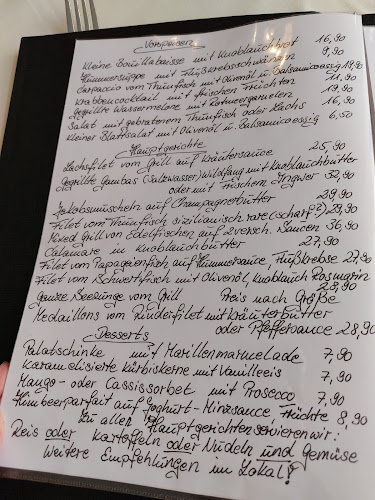 Vorspeisen
Kleine Bouillabaisse mit Knoblauchbrot 16,90
Hummersuppe mit Flußkrebsschwänzen 9,90
Carpaccio vom Thunfisch mit Olivenöl u. Balsamicoessig 19,90
Krabbencocktail mit frischen Früchten 11,90
Gegrillte Wassermelone mit Rotweergarnelen 19,90
Salat mit gebratenem Thunfisch oder Lachs 16,90
Kleiner Blattsalat mit Olivenöl u. Balsamicoessig 6,50
Hauptgerichte
Lachsfilet vom Grill auf Kräutersauce 25,90
Gegrillte Gambas (Salzwasser) Wildfang mit Knoblauchbutter
oder mit frischem Ingwer 32,90
Jakobsmuscheln auf Champagnerbutter 29,90
Filet vom Thunfisch sizilianisch rare (scharf?) 29,90
Mixed Grill von Edelfischen auf 2 versch. Saucen 36,90
Calamare in Knoblauchbutter 27,90
Filet vom Papageienfisch auf Hummersauce, Flußkrebse 27,90
Filet vom Schwertfisch mit Olivenöl, Knoblauch Rosmarin
28,90
Ganze Seezunge vom Grill Preis nach Größe
Medaillons vom Rinderfilet mit Kräuterbutter
oder Pfeffersauce 28,90
Desserts
Palatschinke mit Marillenmarmelade 7,90
Karamelisierte Kürbiskerne mit Vanilleeis 7,90
Mango- oder Cassissorbet mit Prosecco 7,90
Himbeerparfait auf Joghurt-Minzsauce, Früchte 8,90
Zu allen Hauptgerichten servieren wir:
Reis oder Kartoffeln oder Nudeln und Gemüse
Weitere Empfehlungen im Lokal!